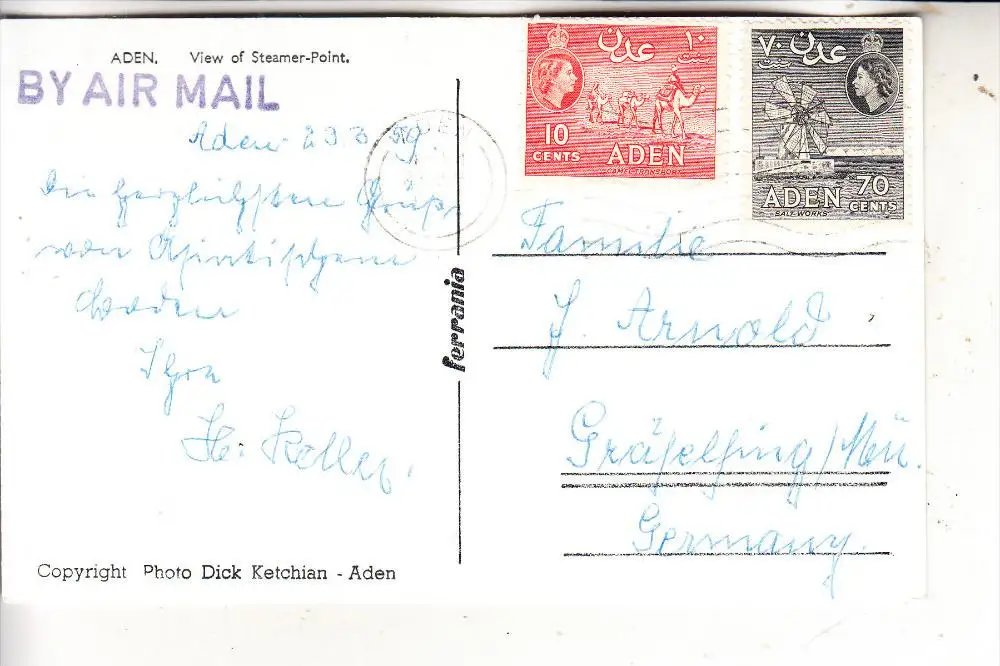 ADEN. View of Steamer-Point.
BY AIR MAIL
Aden 
Die herzlichsten Grüße
vom 
Boden
Ihre
H. Keller.
Copyright Photo Dick Ketchian - Aden
ferrania
10
CENTS
عدن
١٠
سنت
ADEN
CAMEL TRANSPORT
٧٠
سنت
عدن
ADEN
70
CENTS
SALT WORKS
ADEN
Familie
J. Arnold
Gräfelfing/Mü.
Germany.